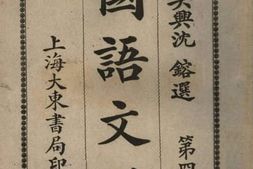 吳興沈鎔選 第四
國語文
上海大東書局印